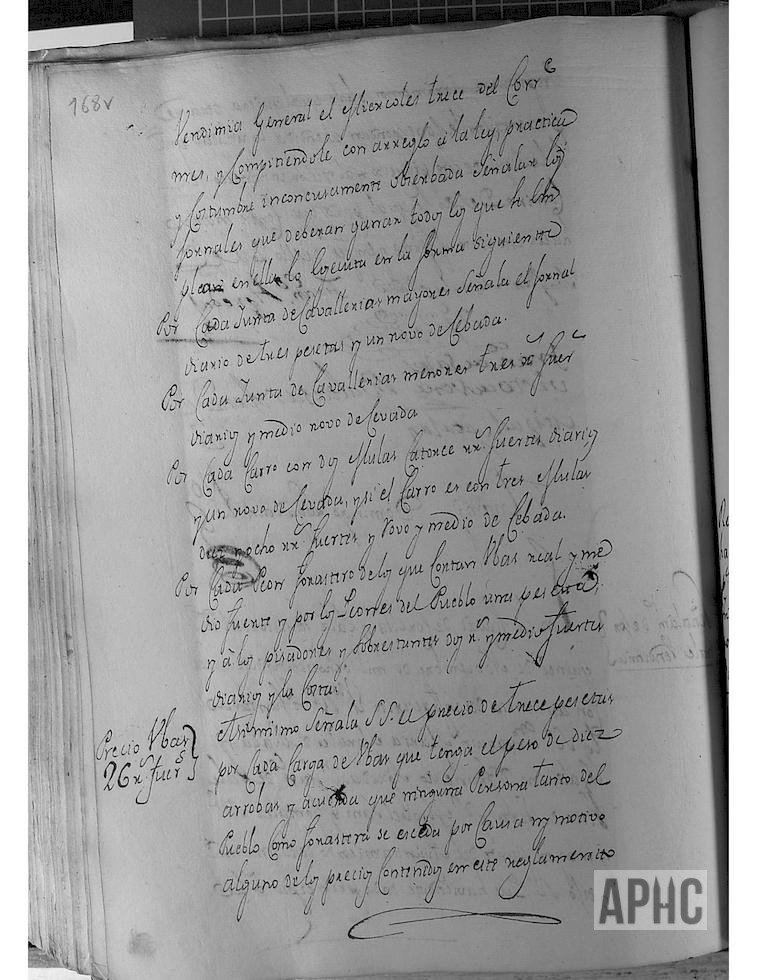 168v
Vendimia General el Miercoles trece del Corr.e
mes, y Compitiendole con arreglo a la ley, practica
y Costumbre inconcusamente obserbada Señalar los
Jornales que deberan ganar todos los que se em
plean en ella lo Ejecuta en la forma siguiente
Por Cada Junta de Cavallerias mayores Señala el Jornal
diario de tres pesetas y un novo de Cebada.
Por Cada Junta de Cavallerias menores tres rs. fuer.s
diarios y medio novo de Cevada
Por Cada Carro con dos Mulas Catorce rrs. fuertes diarios
y un novo de Cevada, y si el Carro es con tres Mulas
diez y ocho rrs. fuertes y Novo y medio de Cebada.
Por Cada Peon forastero de los que Contan Ubas real y me
dio fuerte y por los Peones del Pueblo una peseta,
y á los pisadores y Sobrestantes dos rs. y medio fuertes
diarios y la Costa,
Assimismo Señala S.S. el precio de trece pesetas
por Cada Carga de Ubas que tenga el peso de diez
arrobas y acuerda que ninguna Persona tanto del
Pueblo Como forastera se esceda por Causa ni motivo
alguno de los precios Contenidos en este reglamento
Precio Ubas
26 rs. fuer.s
APHC